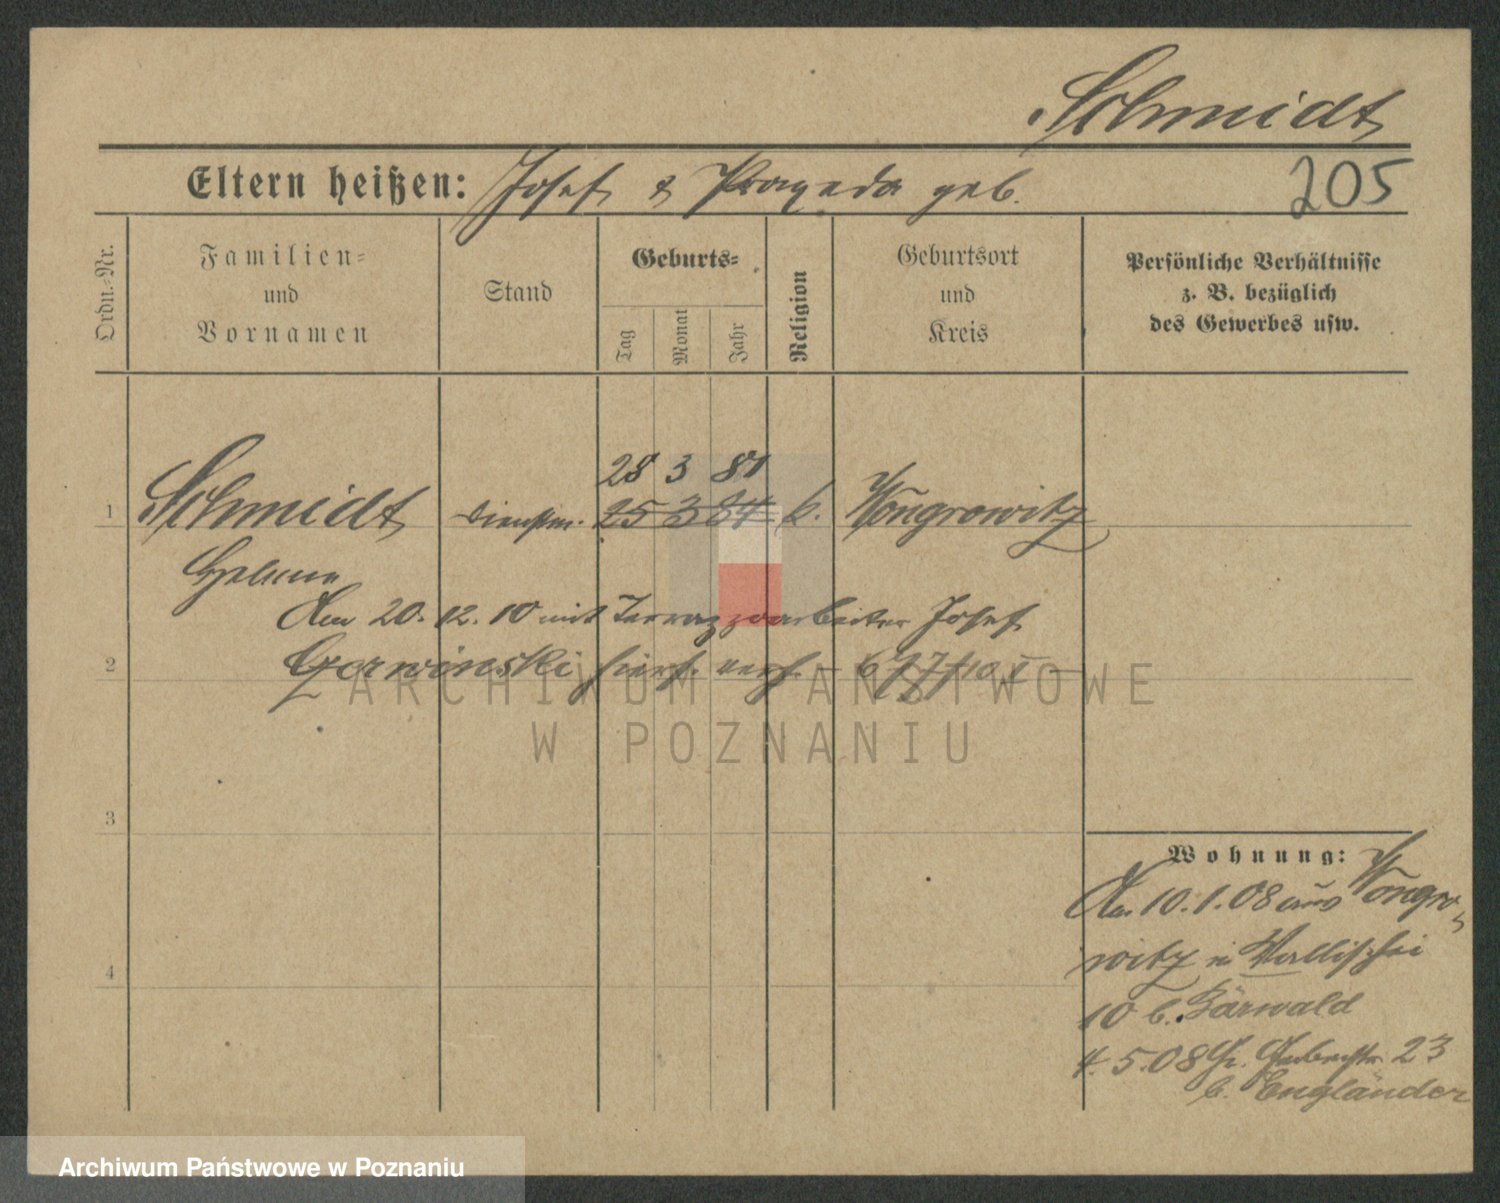 Schmidt
Eltern heißen: Josef & Praxeda geb.
205
Ordn.-Nr.
Familien-
und
Vornamen
Stand
Geburts-
Tag
Monat
Jahr
Religion
Geburtsort
und
Kreis
Persönliche Verhältnisse
z. B. bezüglich
des Gewerbes usw.
28 3 81
1 Schmidt Dienstm. 25 3 84 k. Wongrowitz
Helene
Am 20.12.10 mit Terrazzoarbeiter Josef
2 Czerwinski hiers. verh.
3
Wohnung:
Am 10.1.08 aus Wongro-
witz in Wallischei
4
10 b. Bärwald
4.5.08 Gr. Gerberstr. 23
b. Engländer
ARCHIWUM PAŃSTWOWE
W POZNANIU
Archiwum Państwowe w Poznaniu